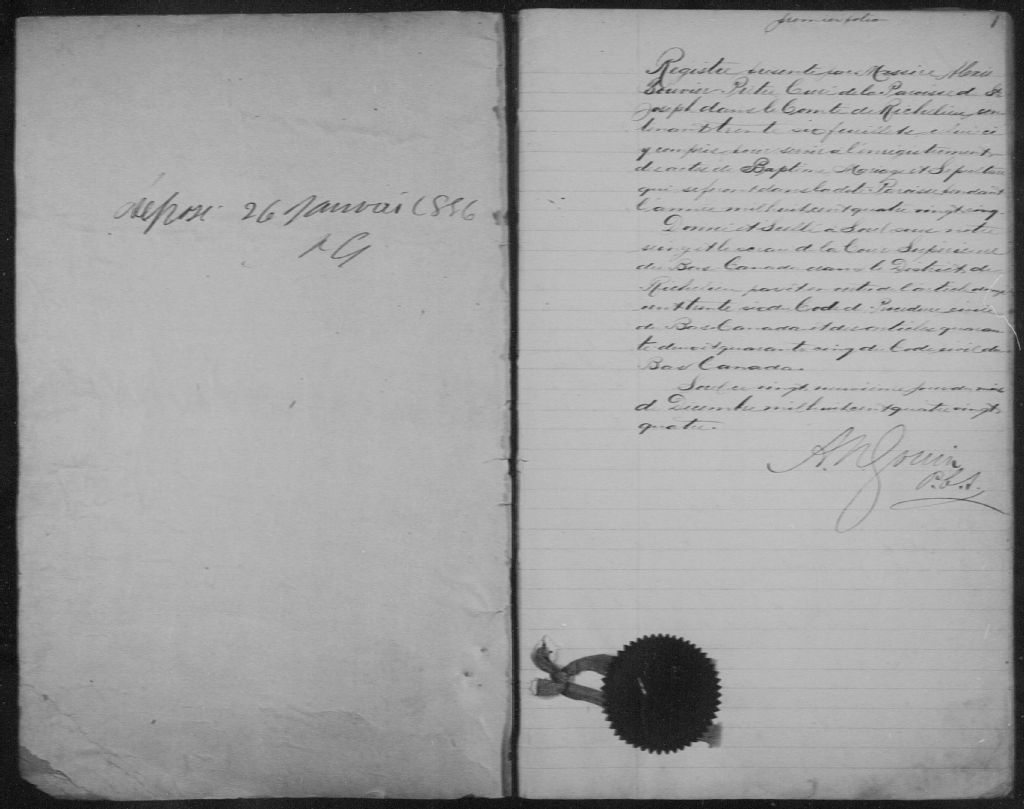 déposé 26 Janvier 1886
AG
premier folio
1
Registre présenté par Messire Alexis
Bouvier Prêtre Curé de la Paroisse de St
Joseph dans le Comté de Richelieu, con
tenant trente six feuillets celui ci
y compris pour servir à l'enregistrement
des actes de Baptême Mariage et Sépulture
qui se feront dans ladite Paroisse pendant
l'année mil huit cent quatre vingt cinq.
Donné et Scellé à Sorel sous notre
seing et le sceau de la Cour Supérieure
du Bas Canada dans le District de
Richelieu en vertu de l'article
cent trente six du Code de Procédure civile
du Bas Canada et des articles quaran
te deux et quarante cinq du Code civil du
Bas Canada.
Sorel ce vingt neuvième jour du mois
de Décembre mil huit cent quatre vingt
quatre.
A. N. Gouin
P.C.S.